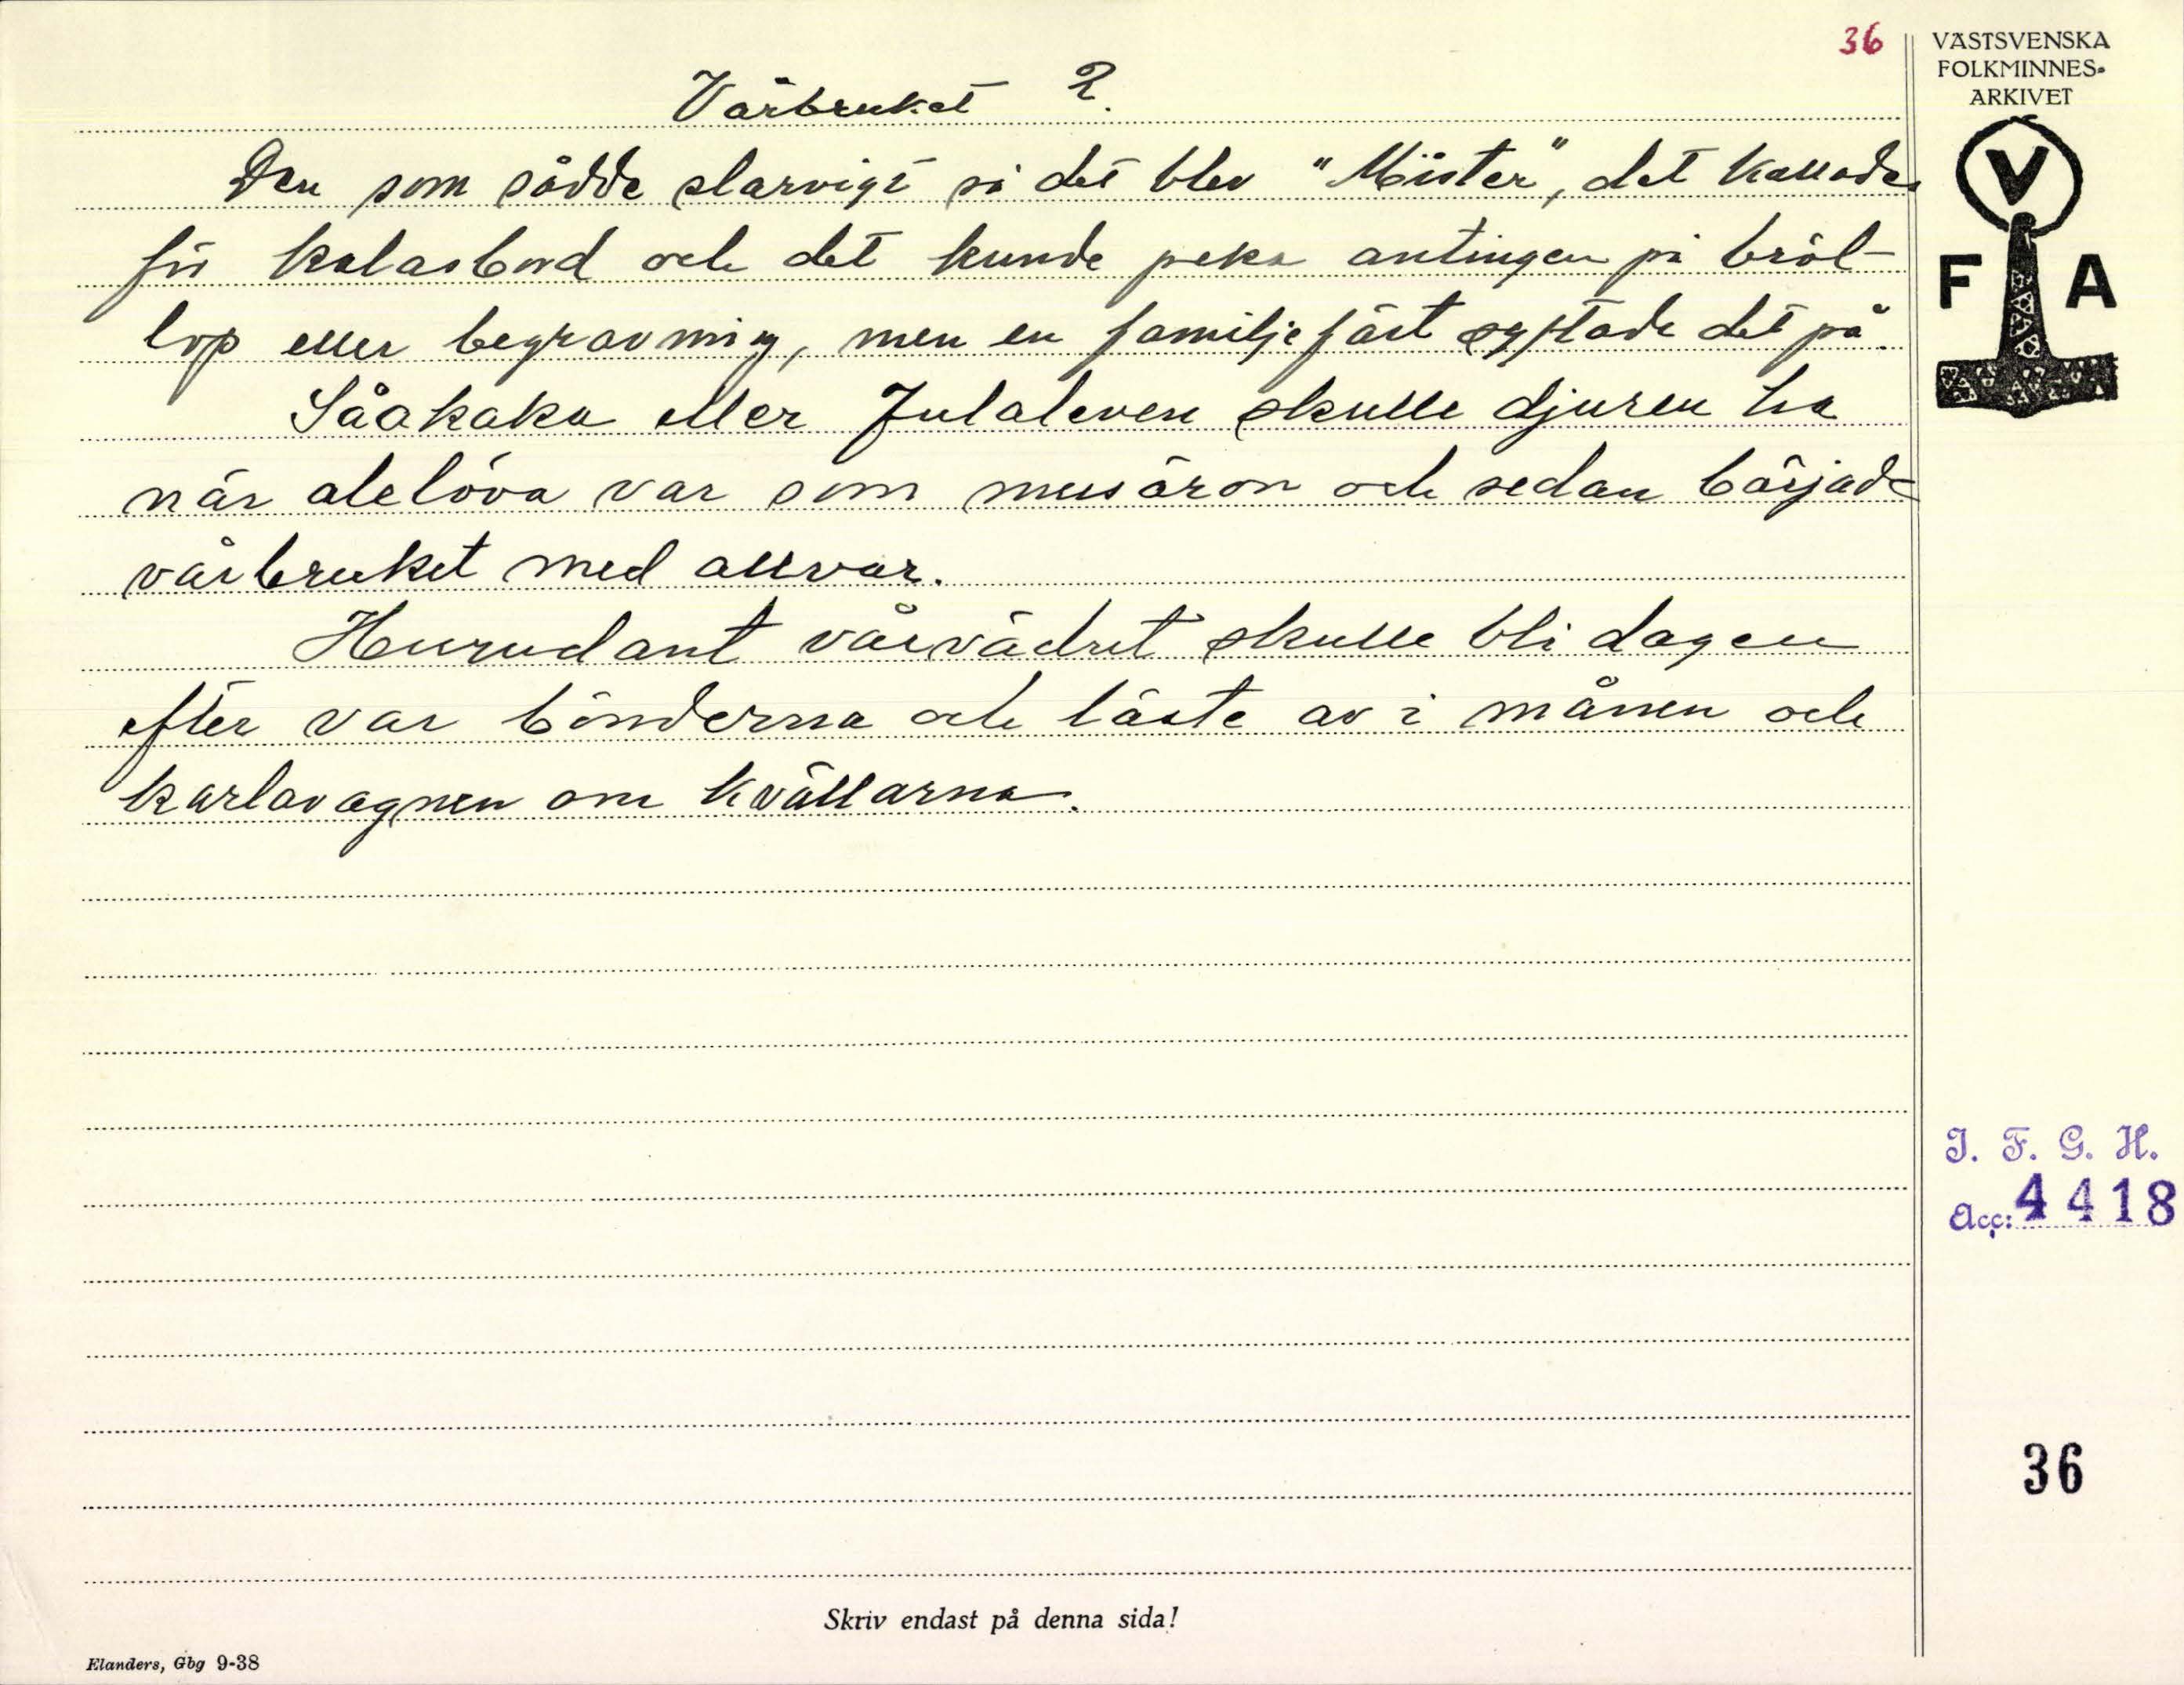 36
VÄSTSVENSKA
FOLKMINNES-
ARKIVET
V
F A
Vårbruket 2.
Den som sådde slarvigt så det blev "Mister", det kallades
för kalasbord och det kunde peka antingen på bröl-
lop eller begravning, men en familjefäst syftade det på.
Såakaka eller Julaleven skulle djuren ha
när alelöva var som musöron och sedan började
vårbruket med allvar.
Hurudant vårvädret skulle bli dagen
efter var bönderna och läste av i månen och
karlavagnen om kvällarna.
I. F. G. H.
Acc: 4418
36
Skriv endast på denna sida!
Elanders, Gbg 9-38